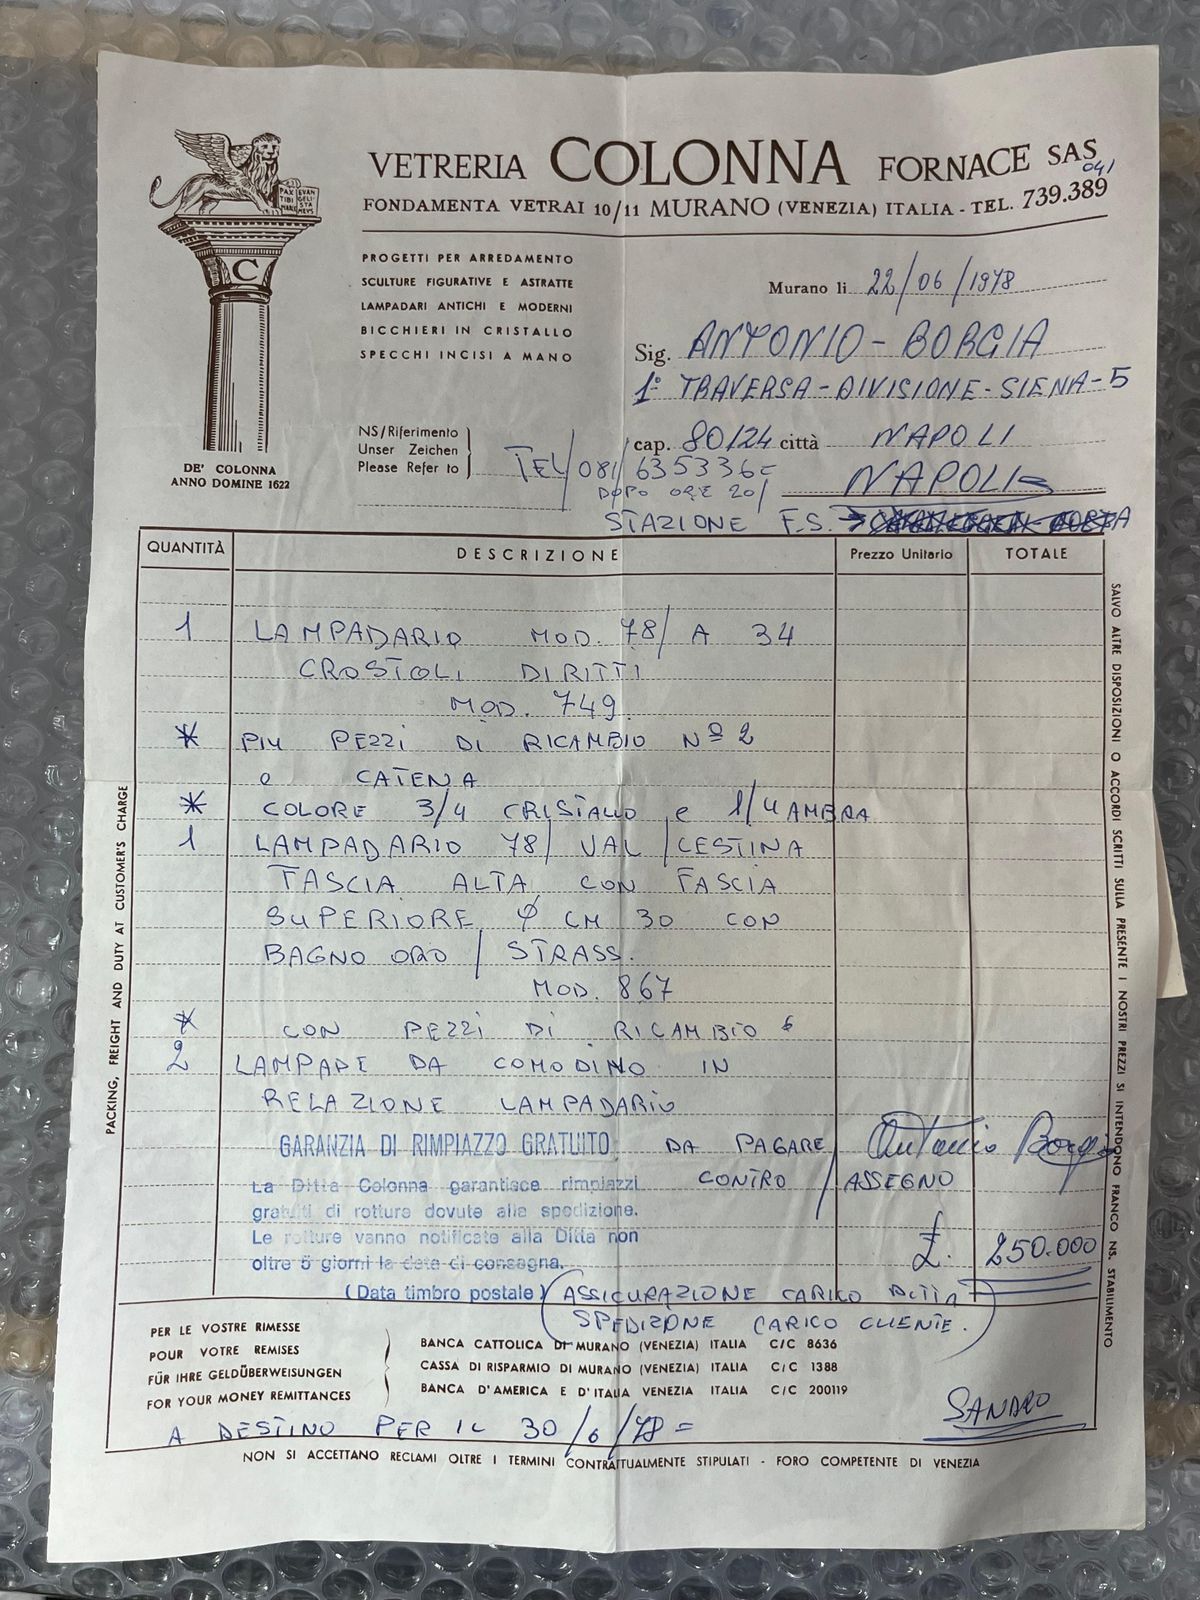 VETRERIA COLONNA FORNACE SAS
041
FONDAMENTA VETRAI 10/11 MURANO (VENEZIA) ITALIA - TEL. 739.389
PAX TIBI MARCE EVAN GELI STA MEVS
C
DE' COLONNA
ANNO DOMINE 1622
PROGETTI PER ARREDAMENTO
SCULTURE FIGURATIVE E ASTRATTE
LAMPADARI ANTICHI E MODERNI
BICCHIERI IN CRISTALLO
SPECCHI INCISI A MANO
Murano li 22/06/1978
Sig. ANTONIO - BORGIA
1° TRAVERSA - DIVISIONE - SIENA - 5
cap. 80124 città NAPOLI
NS/Riferimento
Unser Zeichen
Please Refer to
TEL/081/635336=
DOPO ORE 20/
NAPOLI
STAZIONE F.S. →
QUANTITÀ DESCRIZIONE Prezzo Unitario TOTALE
1 LAMPADARIO MOD. 78/ A 34
CROSTOLI DIRITTI
MOD. 749
* PIU PEZZI DI RICAMBIO Nº 2
e CATENA
* COLORE 3/4 CRISTALLO e 1/4 AMBRA
1 LAMPADARIO 78/ VAL/CESTINA
FASCIA ALTA CON FASCIA
SUPERIORE φ CM 30 CON
BAGNO ORO / STRASS.
MOD. 867
* CON PEZZI DI RICAMBIO 6
2 LAMPADE DA COMODINO IN
RELAZIONE LAMPADARIO
GARANZIA DI RIMPIAZZO GRATUITO DA PAGARE Antonio Borgia
CONTRO / ASSEGNO
La Ditta Colonna garantisce rimpiazzi
gratuiti di rotture dovute alla spedizione.
Le rotture vanno notificate alla Ditta non
oltre 5 giorni la data di consegna.
(Data timbro postale)
£. 250.000
ASSICURAZIONE CARICO DITTA
SPEDIZIONE CARICO CLIENTE.
PER LE VOSTRE RIMESSE
POUR VOTRE REMISES
FÜR IHRE GELDÜBERWEISUNGEN
FOR YOUR MONEY REMITTANCES
BANCA CATTOLICA DI MURANO (VENEZIA) ITALIA C/C 8636
CASSA DI RISPARMIO DI MURANO (VENEZIA) ITALIA C/C 1388
BANCA D'AMERICA E D'ITALIA VENEZIA ITALIA C/C 200119
A DESTINO PER IL 30/6/78=
SANDRO
NON SI ACCETTANO RECLAMI OLTRE I TERMINI CONTRATTUALMENTE STIPULATI - FORO COMPETENTE DI VENEZIA
PACKING, FREIGHT AND DUTY AT CUSTOMER'S CHARGE
SALVO ALTRE DISPOSIZIONI O ACCORDI SCRITTI SULLA PRESENTE I NOSTRI PREZZI SI INTENDONO FRANCO NS. STABILIMENTO